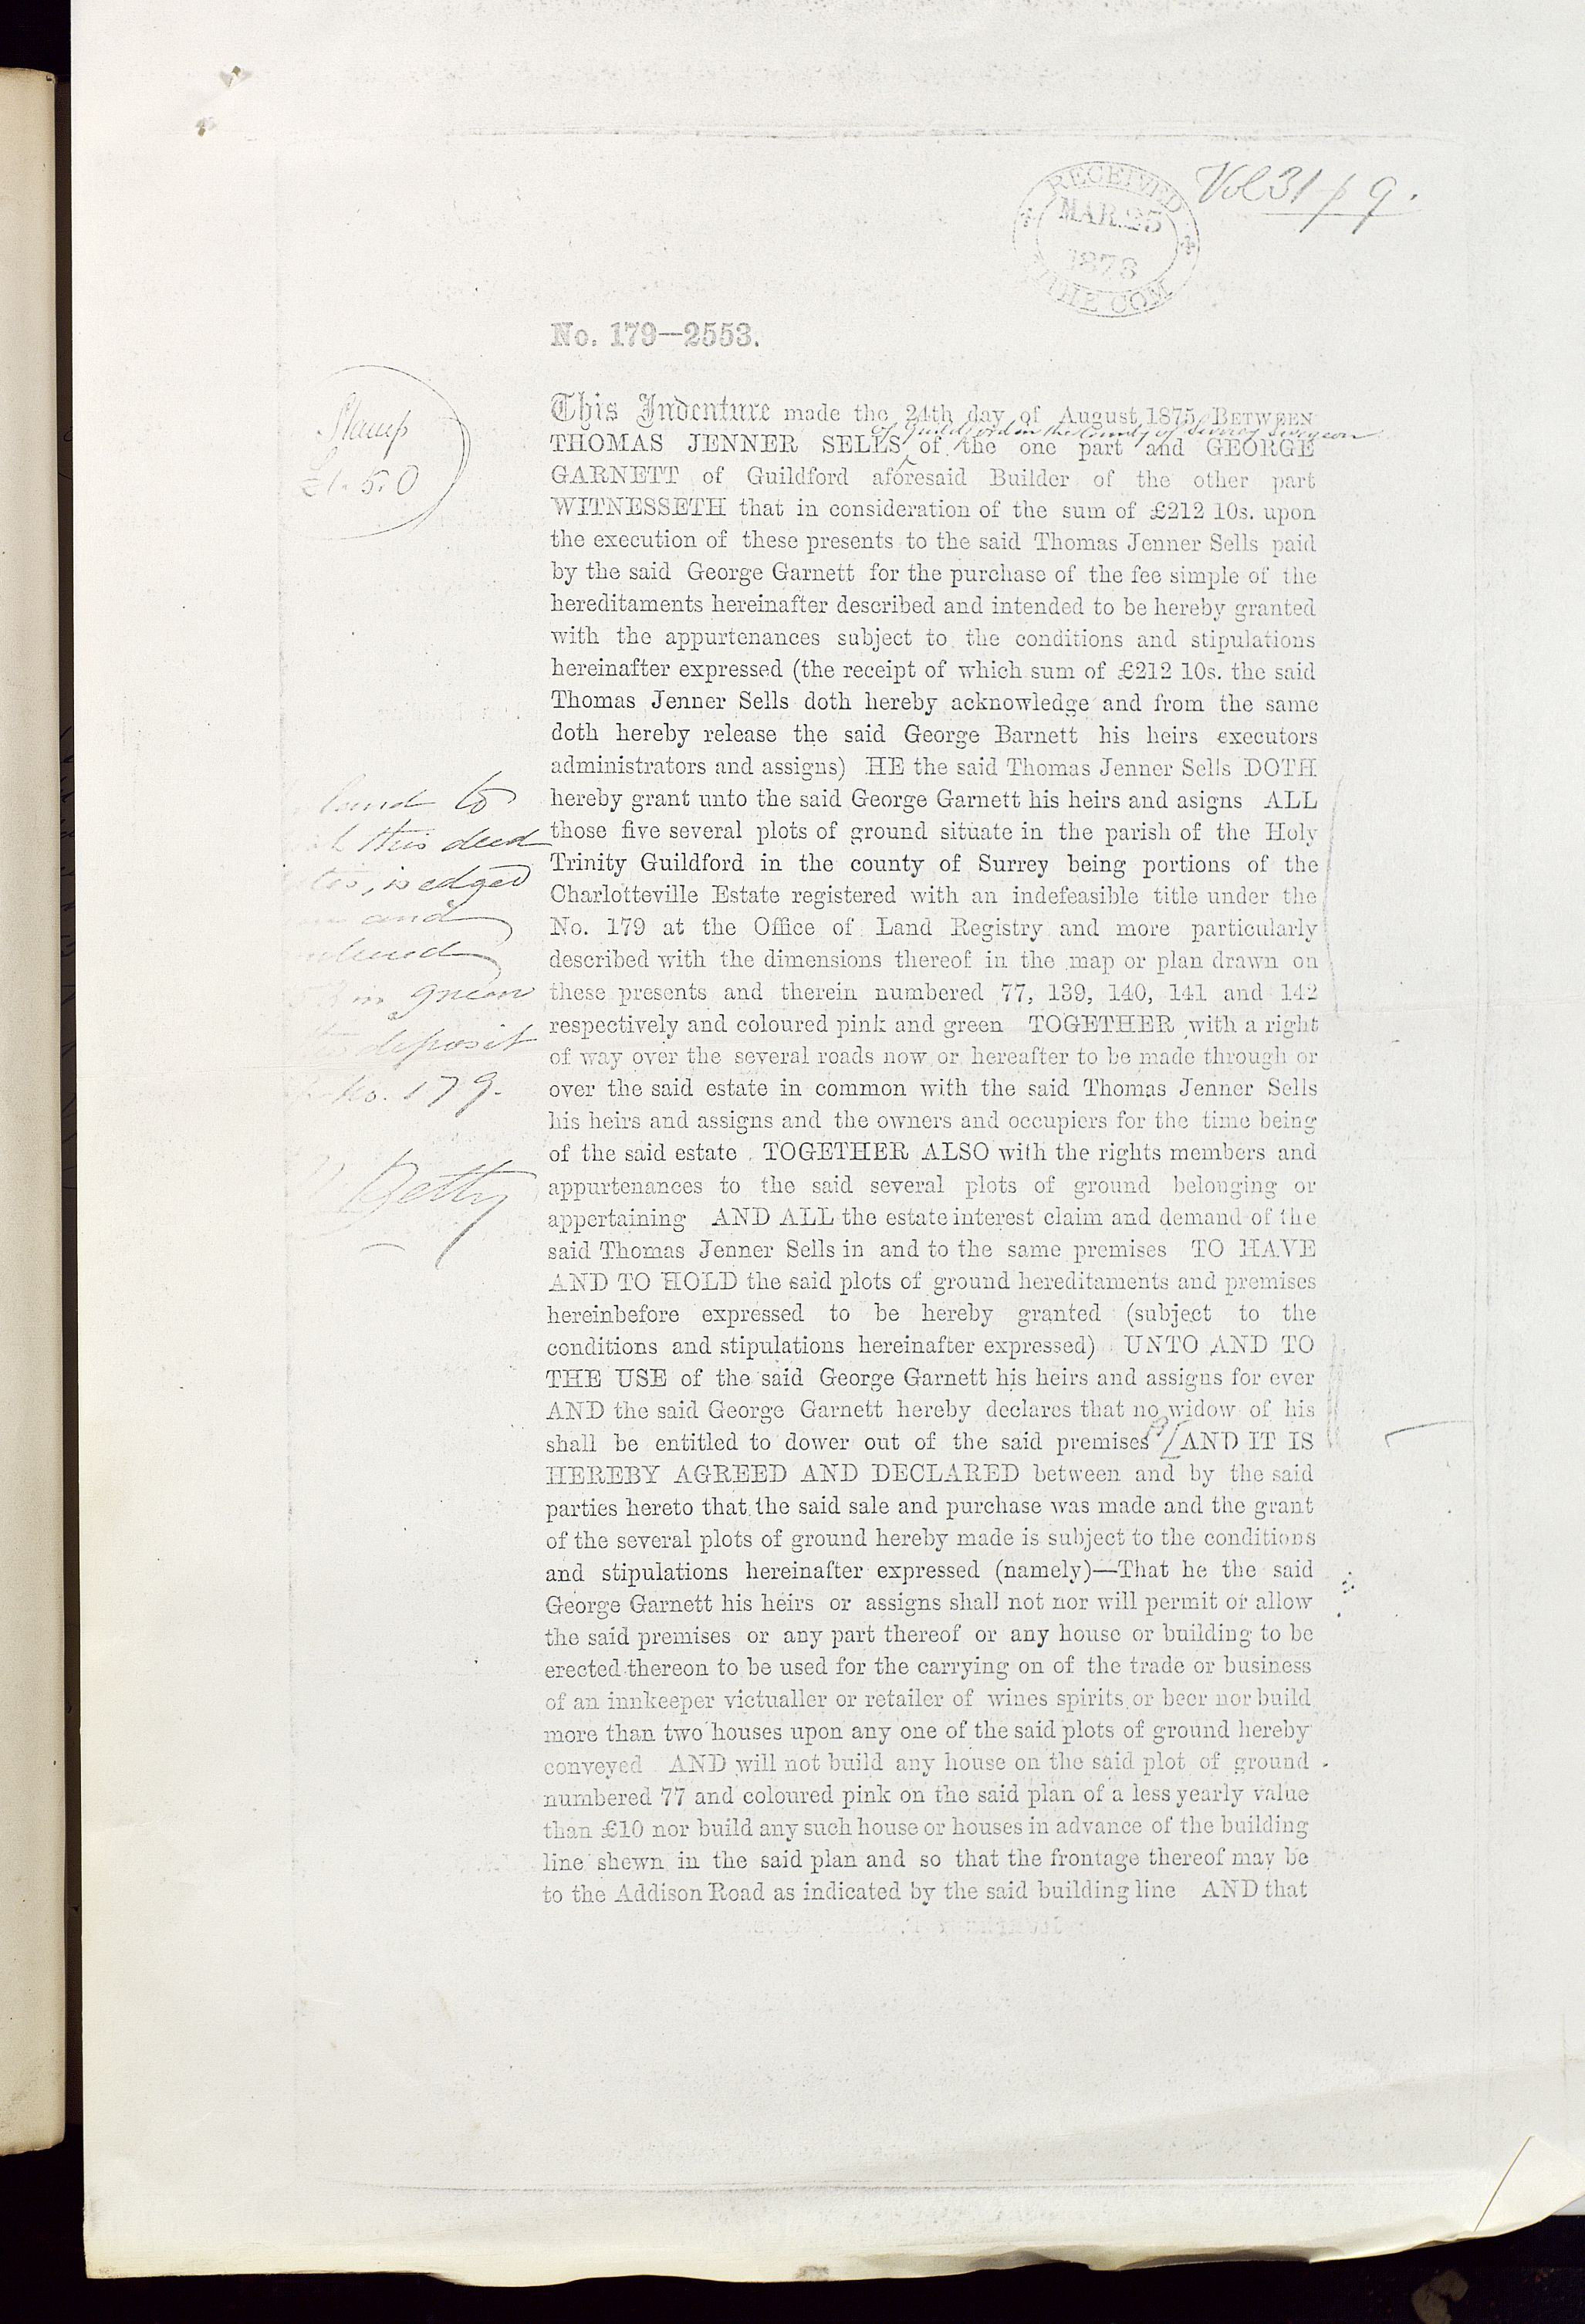 Vol 31 p 9.
RECEIVED
MAR. 25
1876
TITHE COM
No. 179—2553.
Stamp
£1. 5. 0
This Indenture made the 24th day of August 1875 BETWEEN
of Guildford in the County of Surrey Surgeon
THOMAS JENNER SELLS of the one part and GEORGE
GARNETT of Guildford aforesaid Builder of the other part
WITNESSETH that in consideration of the sum of £212 10s. upon
the execution of these presents to the said Thomas Jenner Sells paid
by the said George Garnett for the purchase of the fee simple of the
hereditaments hereinafter described and intended to be hereby granted
with the appurtenances subject to the conditions and stipulations
hereinafter expressed (the receipt of which sum of £212 10s. the said
Thomas Jenner Sells doth hereby acknowledge and from the same
doth hereby release the said George Barnett his heirs executors
administrators and assigns) HE the said Thomas Jenner Sells DOTH
hereby grant unto the said George Garnett his heirs and asigns ALL
those five several plots of ground situate in the parish of the Holy
Trinity Guildford in the county of Surrey being portions of the
Charlotteville Estate registered with an indefeasible title under the
No. 179 at the Office of Land Registry and more particularly
described with the dimensions thereof in the map or plan drawn on
these presents and therein numbered 77, 139, 140, 141 and 142
respectively and coloured pink and green TOGETHER with a right
of way over the several roads now or hereafter to be made through or
over the said estate in common with the said Thomas Jenner Sells
his heirs and assigns and the owners and occupiers for the time being
of the said estate TOGETHER ALSO with the rights members and
appurtenances to the said several plots of ground belonging or
appertaining AND ALL the estate interest claim and demand of the
said Thomas Jenner Sells in and to the same premises TO HAVE
AND TO HOLD the said plots of ground hereditaments and premises
hereinbefore expressed to be hereby granted (subject to the
conditions and stipulations hereinafter expressed) UNTO AND TO
THE USE of the said George Garnett his heirs and assigns for ever
AND the said George Garnett hereby declares that no widow of his
shall be entitled to dower out of the said premises AND IT IS
HEREBY AGREED AND DECLARED between and by the said
parties hereto that the said sale and purchase was made and the grant
of the several plots of ground hereby made is subject to the conditions
and stipulations hereinafter expressed (namely)—That he the said
George Garnett his heirs or assigns shall not nor will permit or allow
the said premises or any part thereof or any house or building to be
erected thereon to be used for the carrying on of the trade or business
of an innkeeper victualler or retailer of wines spirits or beer nor build
more than two houses upon any one of the said plots of ground hereby
conveyed AND will not build any house on the said plot of ground
numbered 77 and coloured pink on the said plan of a less yearly value
than £10 nor build any such house or houses in advance of the building
line shewn in the said plan and so that the frontage thereof may be
to the Addison Road as indicated by the said building line AND that
land to
this deed
is edged
and
in green
deposit
No. 179.
Betty